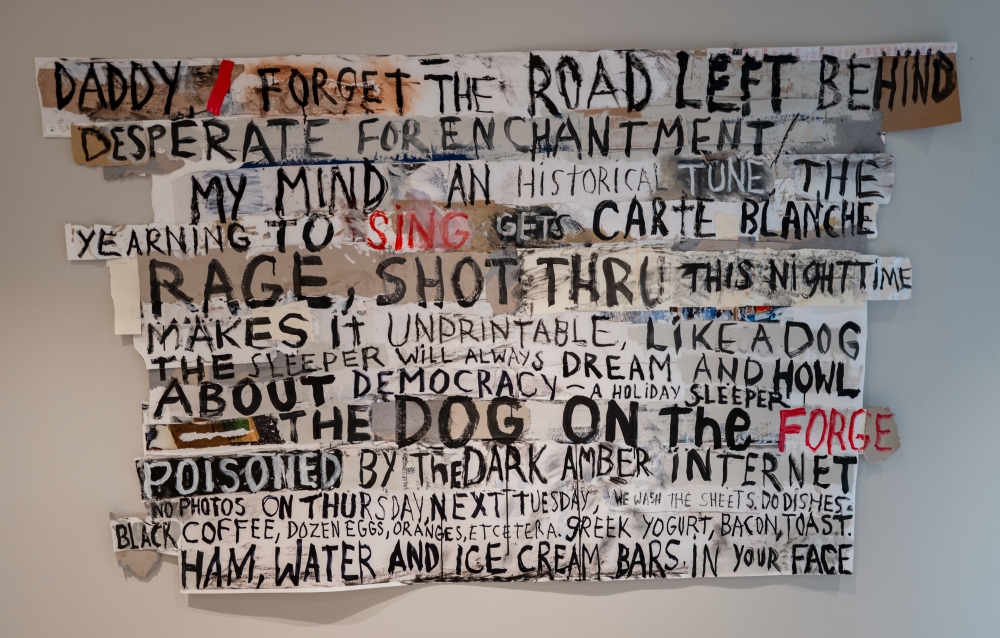 DADDY, I FORGET THE ROAD LEFT BEHIND
DESPERATE FOR ENCHANTMENT/
MY MIND AN HISTORICAL TUNE, THE
YEARNING TO SING GETS CARTE BLANCHE
RAGE, SHOT THRU THIS NIGHTTIME
MAKES IT UNPRINTABLE, LIKE A DOG
THE SLEEPER WILL ALWAYS DREAM AND HOWL
ABOUT DEMOCRACY – A HOLIDAY SLEEPER
THE DOG ON the FORGE
POISONED BY THE DARK AMBER INTERNET
NO PHOTOS ON THURSDAY, NEXT TUESDAY, WE WASH THE SHEETS. DO DISHES.
BLACK COFFEE, DOZEN EGGS, ORANGES, ETCETERA. GREEK YOGURT, BACON, TOAST.
HAM, WATER AND ICE CREAM BARS. IN YOUR FACE